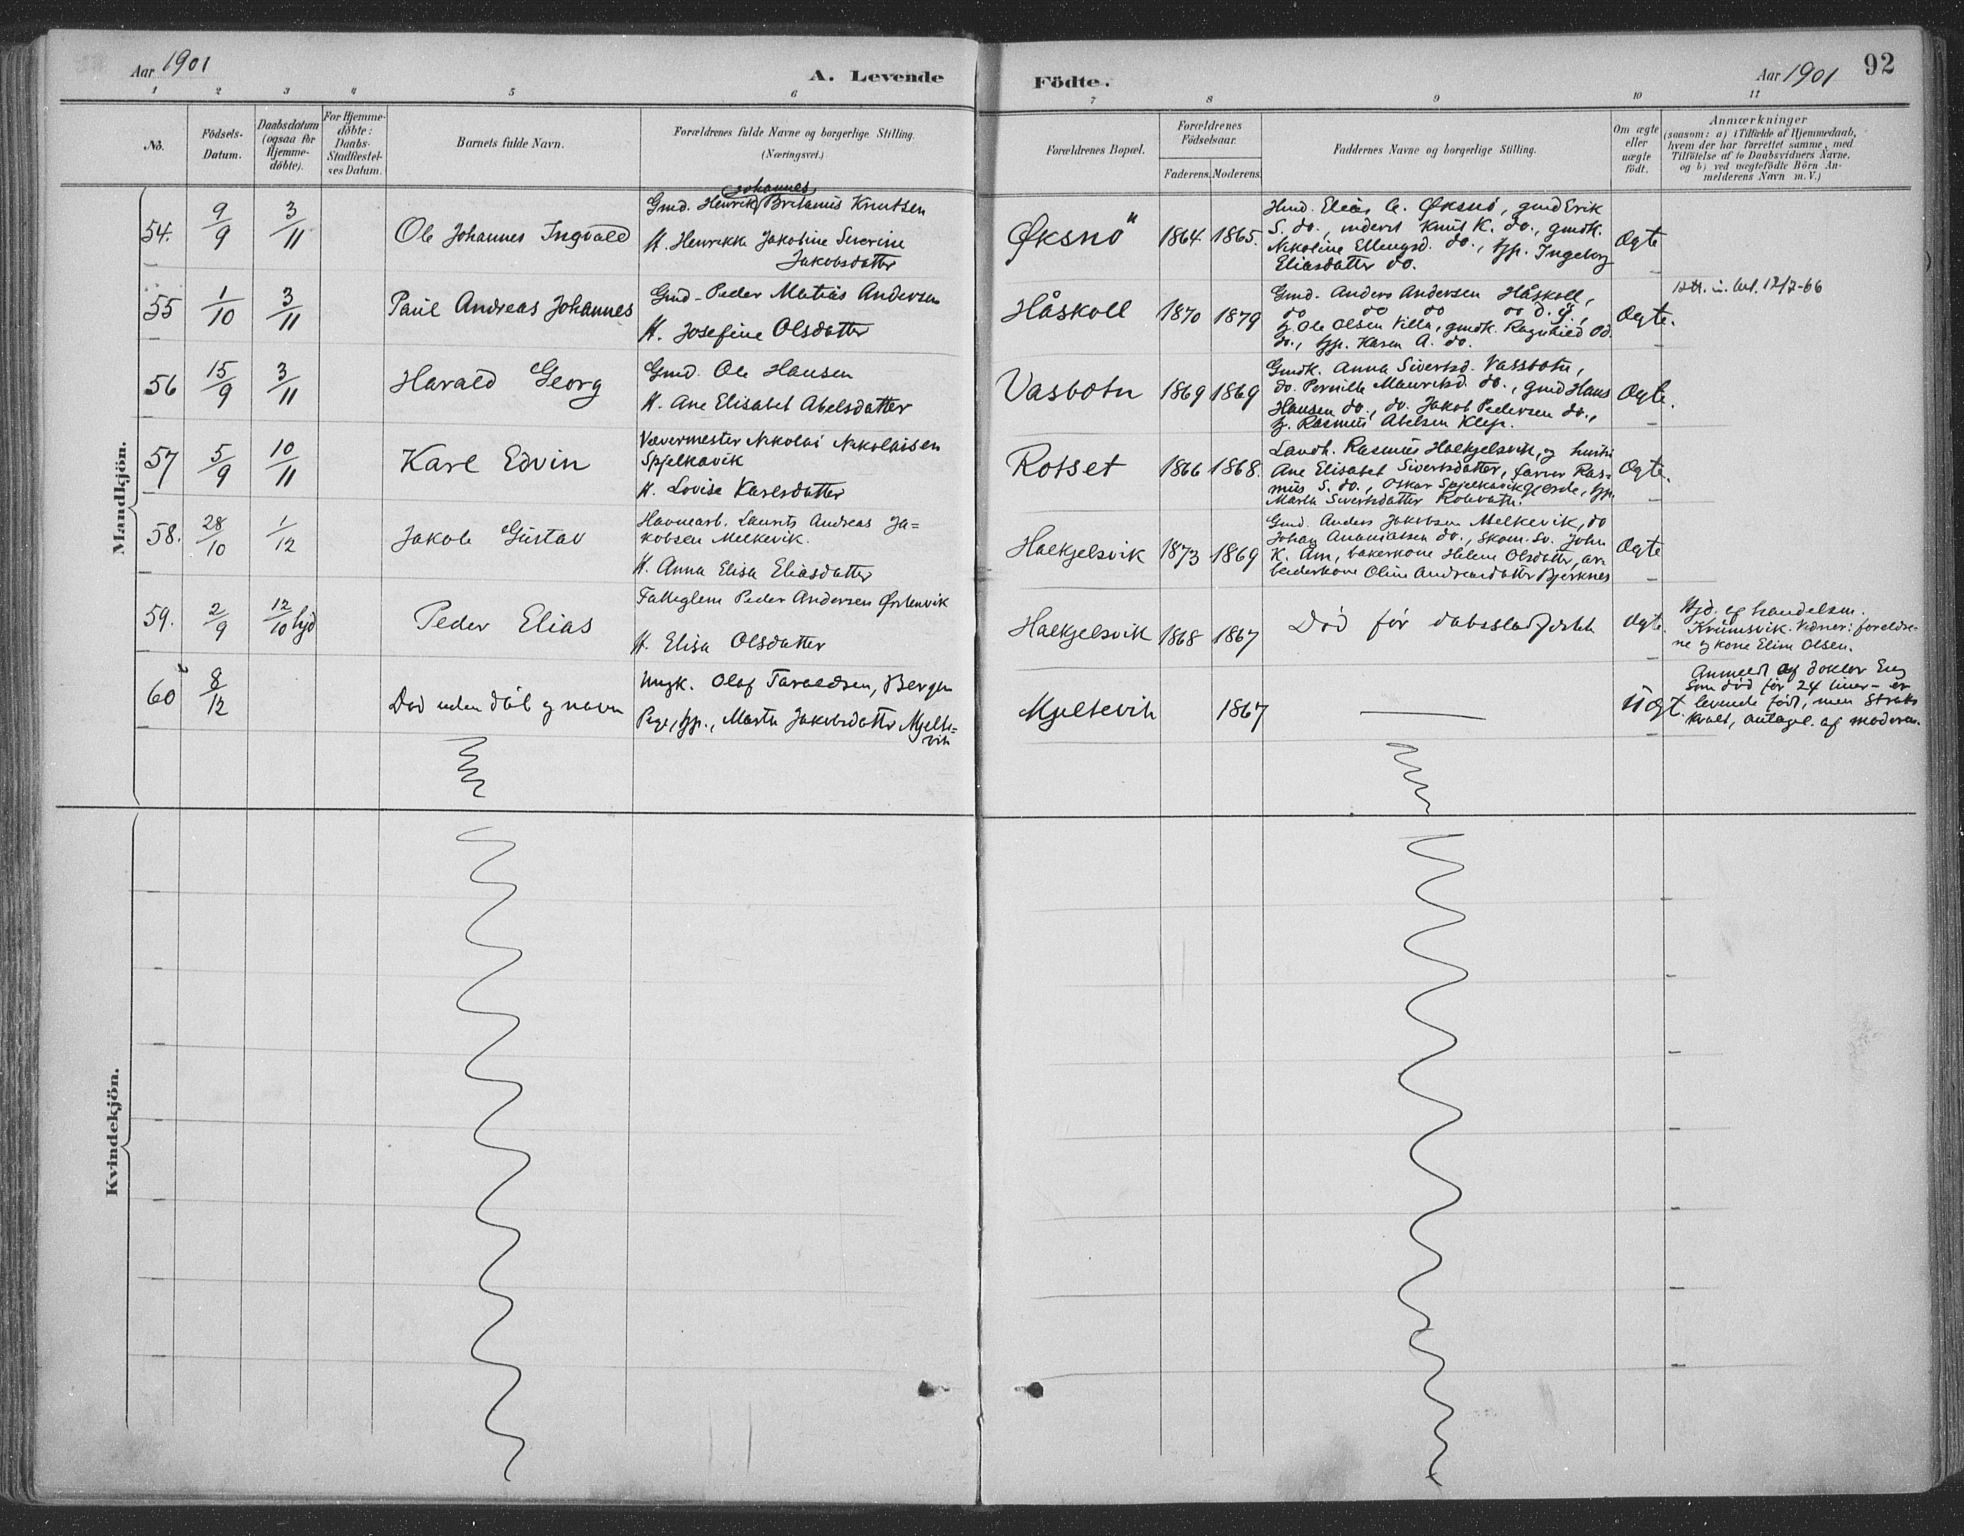 Aar 1901
A. Levende
Födte.
Aar 1901
92
1 2 3 4 5 6 7 8 9 10 11
No.
Födsels-
Datum.
Daabsdatum
(ogsaa for
Hjemme-
döbte).
For Hjemme-
döbte:
Daabs-
Stadfæstel-
ses Datum.
Barnets fulde Navn.
Forældrenes fulde Navne og borgerlige Stilling.
(Næringsvei.)
Forældrenes Bopæl.
Forældrenes
Födselsaar.
Faderens. Moderens.
Faddernes Navne og borgerlige Stilling.
Om ægte
eller
uægte
födt.
Anmærkninger
(saasom: a) i Tilfælde af Hjemmedaab,
hvem der har forrettet samme, med
Tilföielse af to Daabsvidners Navne,
og b) ved uægtefödte Börn An-
melderens Navn m. V.)
Mandkjön.
54. 9/9 3/11 Ole Johannes Ingvald
Johannes
Gmd. Henrik Britanus Knutsen
H. Henrikka Jakobine Severine
Jakobsdatter
Øksnö 1864 1865.
Gmd. Elias A. Øksnö, gmd Erik
S. do., inderst Knut K. do., gmdk.
Nikoline Ellengsd. do., pp. Ingeborg
Eliasdatter do.
Ogte
55 1/10 3/11 Paul Andreas Johannes
Gmd. Peder Matias Andersen
H. Josefine Olsdatter
Håskoll 1870 1879
Gmd. Anders Andersen Håskoll,
do do do do d.y.,
g. Ole Olsen Villa, gmdk. Ragnhild Od.
do., pp. Karen A. do.
Ogte.
12/7-66
56 15/9 3/11 Harald Georg
Gmd. Ole Hansen
H. Ane Elisabet Abelsdatter
Vasbotn 1869 1869
Gmdk. Anna Sivertsd. Vassbotn,
do. Pernille Mauritsd. do., gmd Hans
Hansen do., do. Jakob Pedersen do.,
g. Rasmus Abelsen Klep.
Ogte.
57 5/9 10/11 Karl Edvin
Vævermester Nikolai Nikolaisen
Spjelkavik
H. Lovise Karlsdatter
Rotset 1866 1868.
Landh. Rasmus Halkjelsvik, og hustru
Ane Elisabet Sivertsdatter, farver Ras-
mus S. do., Oskar Spjelkavikgjerde, pp.
Marta Sivertsdatter
Ogte.
58. 28/10 1/12 Jakob Gustav
Havnearb. Laurits Andreas Ja-
kobsen Melkevik.
H. Anna Elisa Eliasdatter
Halkjelsvik 1873 1869
Gmd. Anders Jakobsen Melkevik, do
Johan Ananiassen do., skom. sv. John
K. Åm, bakerkone Helene Olsdatter, ar-
beiderkone Oline Andreasdatter Bjerknes
Ogte
59. 2/9 12/10 hjd Peder Elias
Fattiglem Peder Andersen Ørstenvik
H. Elisa Olsdatter
Halkjelsvik 1868 1867
Död för dabsstadfestelse
Ogte.
Hjd. af handelsm.
Krumsvik. Vidner: foreldre-
ne og kone Elise Olsen.
60 8/12 Död uden dåb og navn
Ungk. Olaf Taraldsen, Bergen
Pige, pp., Marta Jakobsdatter Mjelte-
vik
Mjeltevik 1867
Uegt.
Anmeldt af doktor Eng
som död för 24 timer - er
levende född, men straks
kvalt, antagel. af moderen.
Kvindekjön.